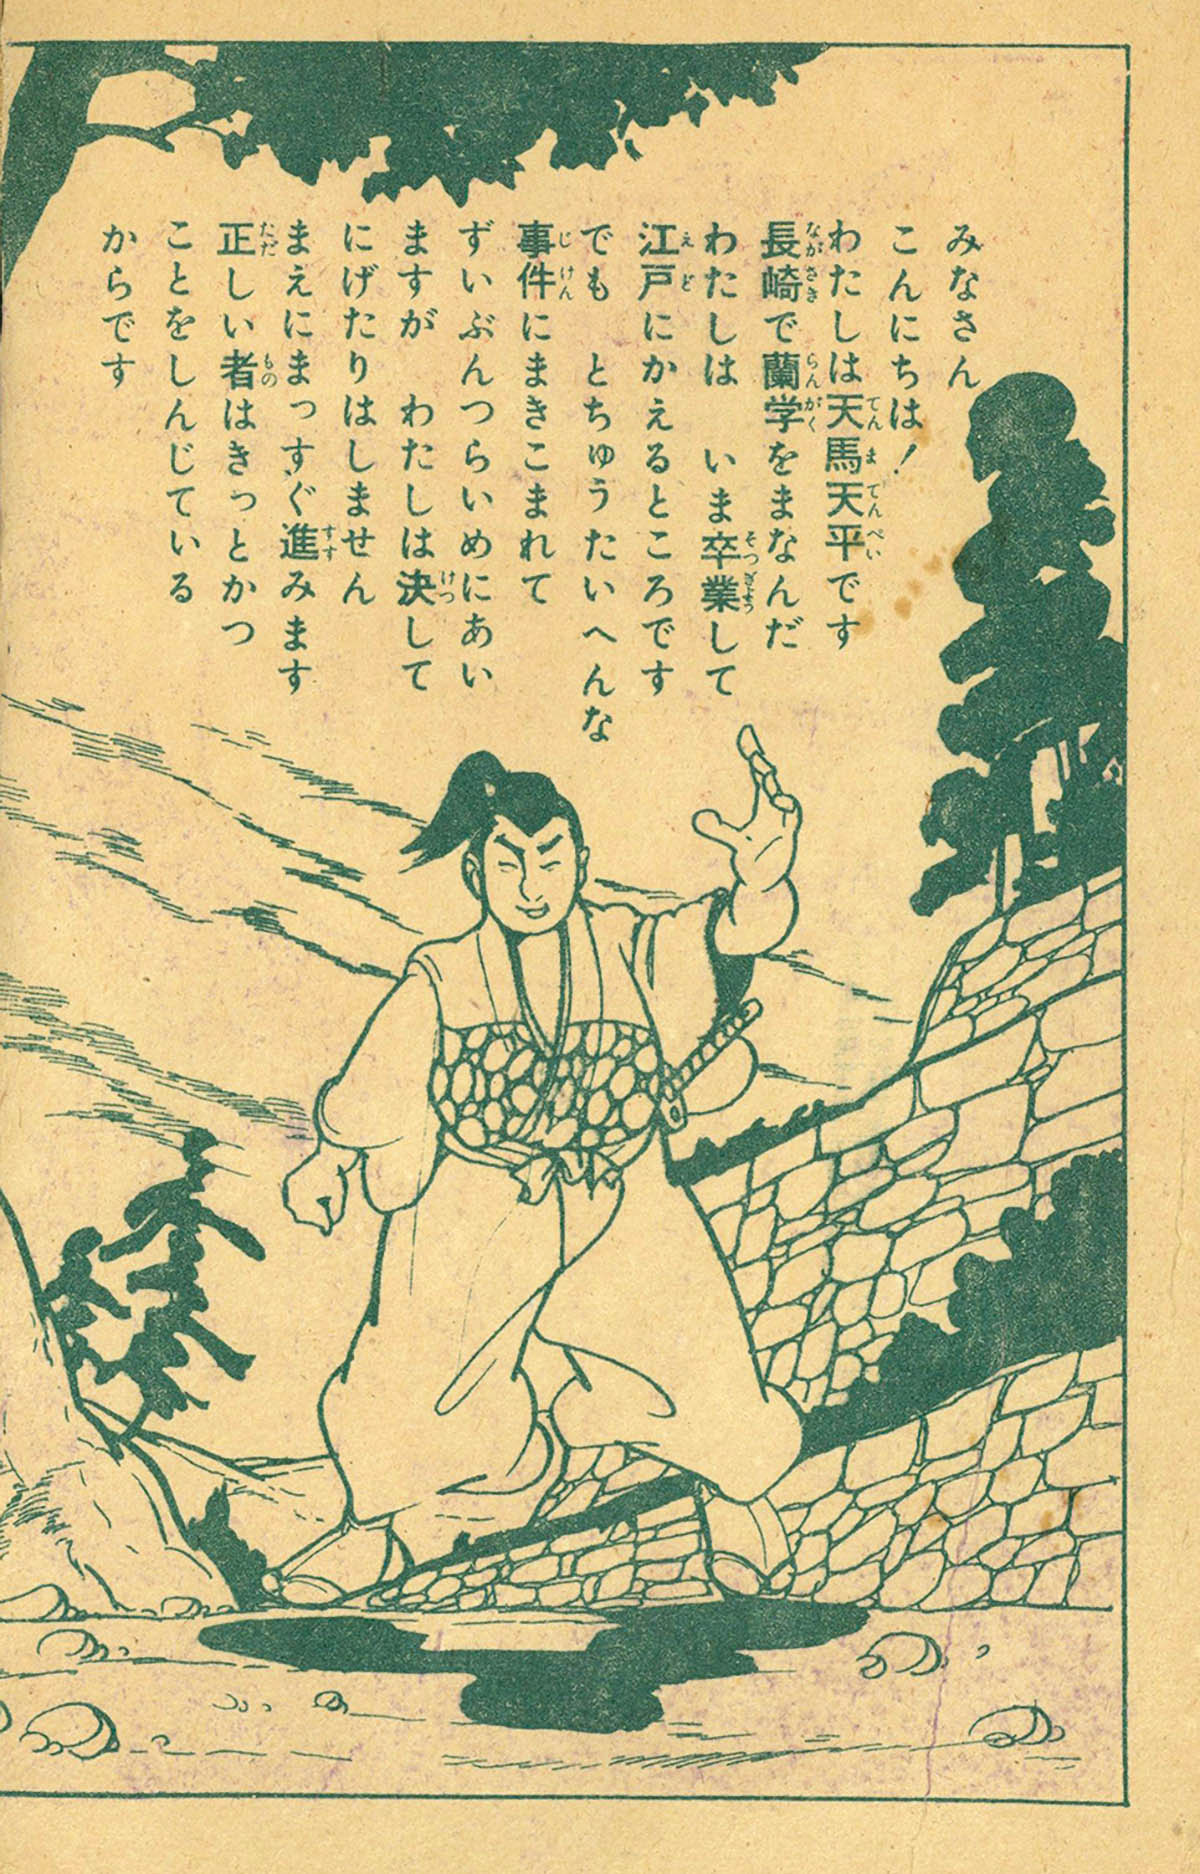 みなさん
こんにちは!
わたしは天馬天平です
長崎で蘭学をまなんだ
わたしは いま卒業して
江戸にかえるところです
でも とちゅうたいへんな
事件にまきこまれて
ずいぶんつらいめにあい
ますが わたしは決して
にげたりはしません
まえにまっすぐ進みます
正しい者はきっとかつ
ことをしんじている
からです